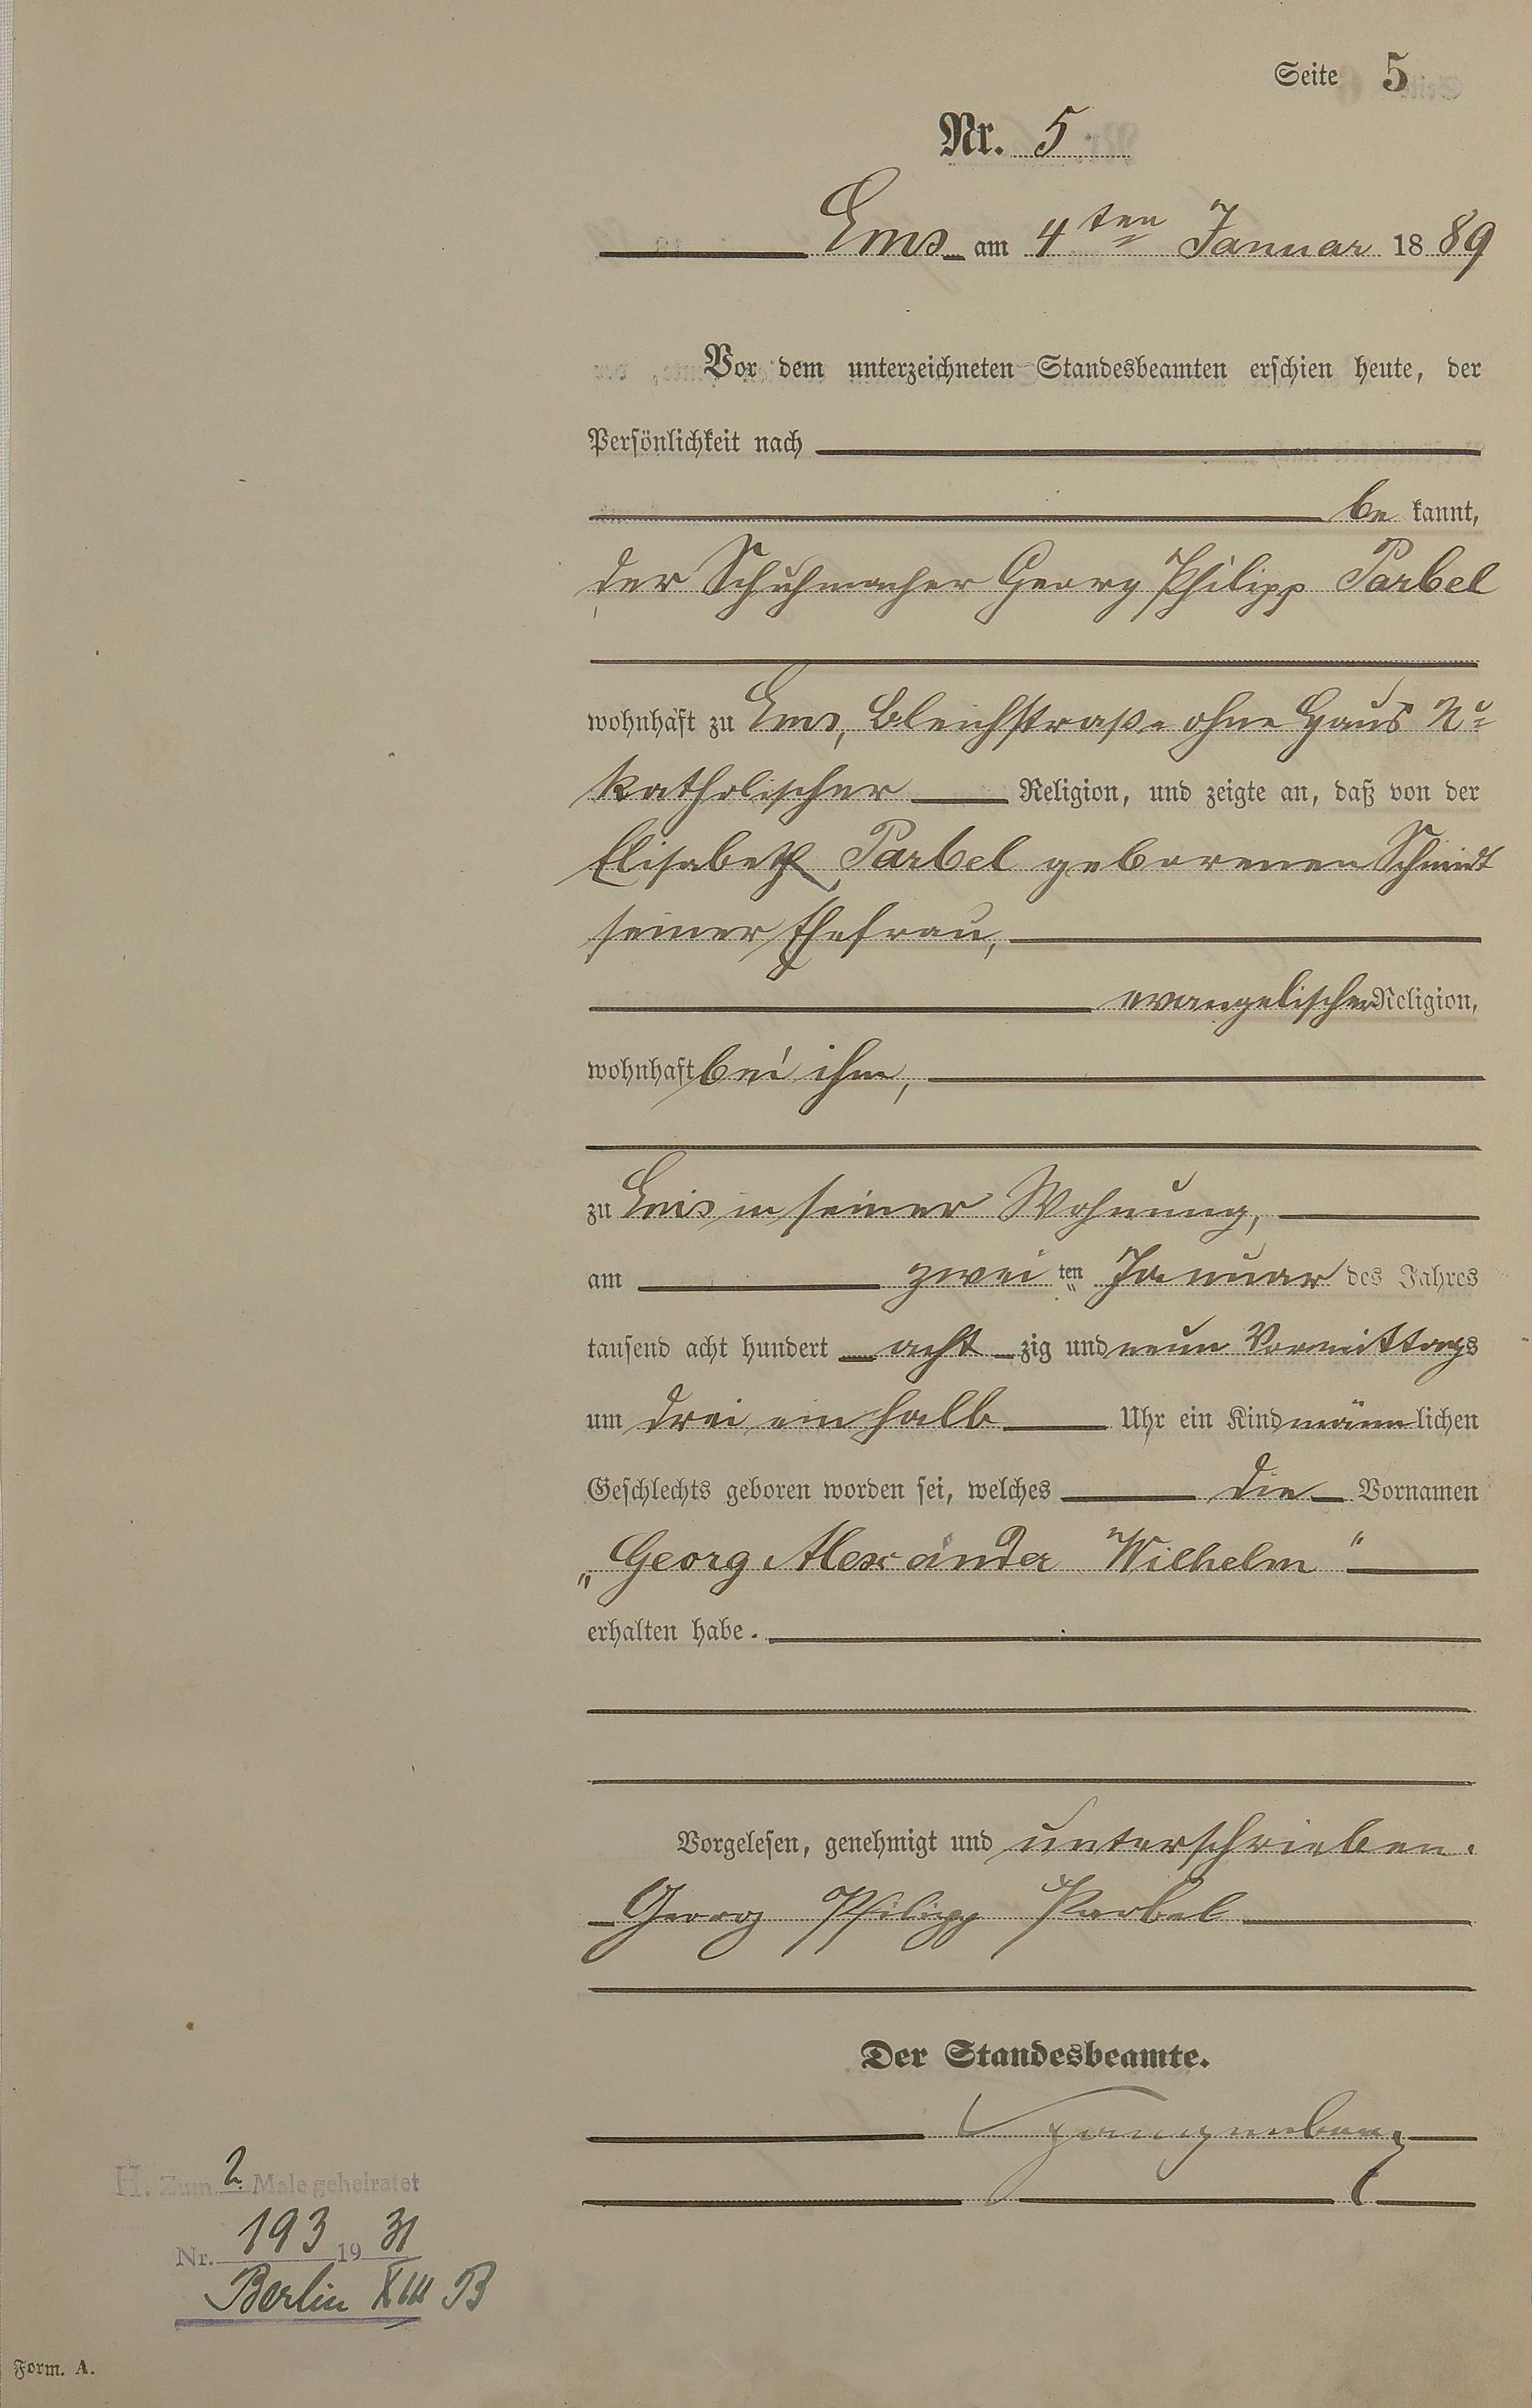 Seite 5
Nr. 5
Ems am 4ten Januar 1889
Vor dem unterzeichneten Standesbeamten erschien heute, der
Persönlichkeit nach
be kannt,
der Schuhmacher Georg Philipp Parbel
wohnhaft zu Ems, Bleichstraße ohne Haus No
katholischer Religion, und zeigte an, daß von der
Elisabeth Parbel geborenen Schmidt
seiner Ehefrau,
evangelischer Religion,
wohnhaft bei ihm,
zu Ems in seiner Wohnung,
am zwei ten Januar des Jahres
tausend acht hundert acht zig und neun Vormittags
um drei ein halb Uhr ein Kind männ lichen
Geschlechts geboren worden sei, welches die Vornamen
„Georg Alexander Wilhelm"
erhalten habe.
Vorgelesen, genehmigt und unterschrieben.
Georg Philipp Parbel
Der Standesbeamte.
H. Zum 2. Male geheiratet
Nr. 193 19 31
Berlin XIII B
Form. A.